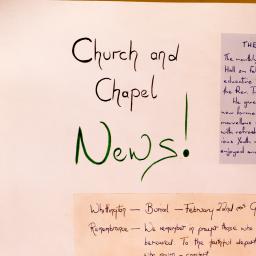 Church and
Chapel
News!
THE
The monthly
Hall on Feb
educative
the Rev. J
He gave
new forme
marvellous
with refresh
ious Youth
enjoyed an
Whittington — Burial — February 22nd
Remembrance — We remember in prayer those who
bereaved. To the faithful depart